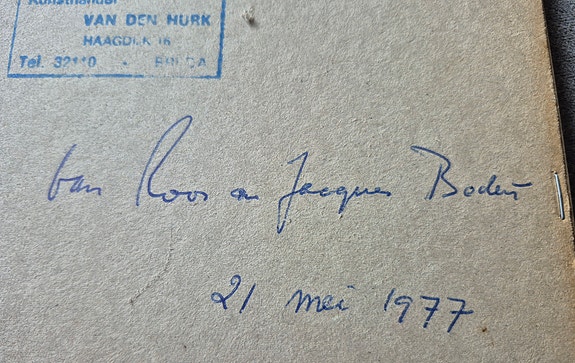 Kunsthandel
VAN DEN HURK
HAAGDIJK 16
Tel. 32110 - BREDA
van Roos en Jacques Boden
21 mei 1977